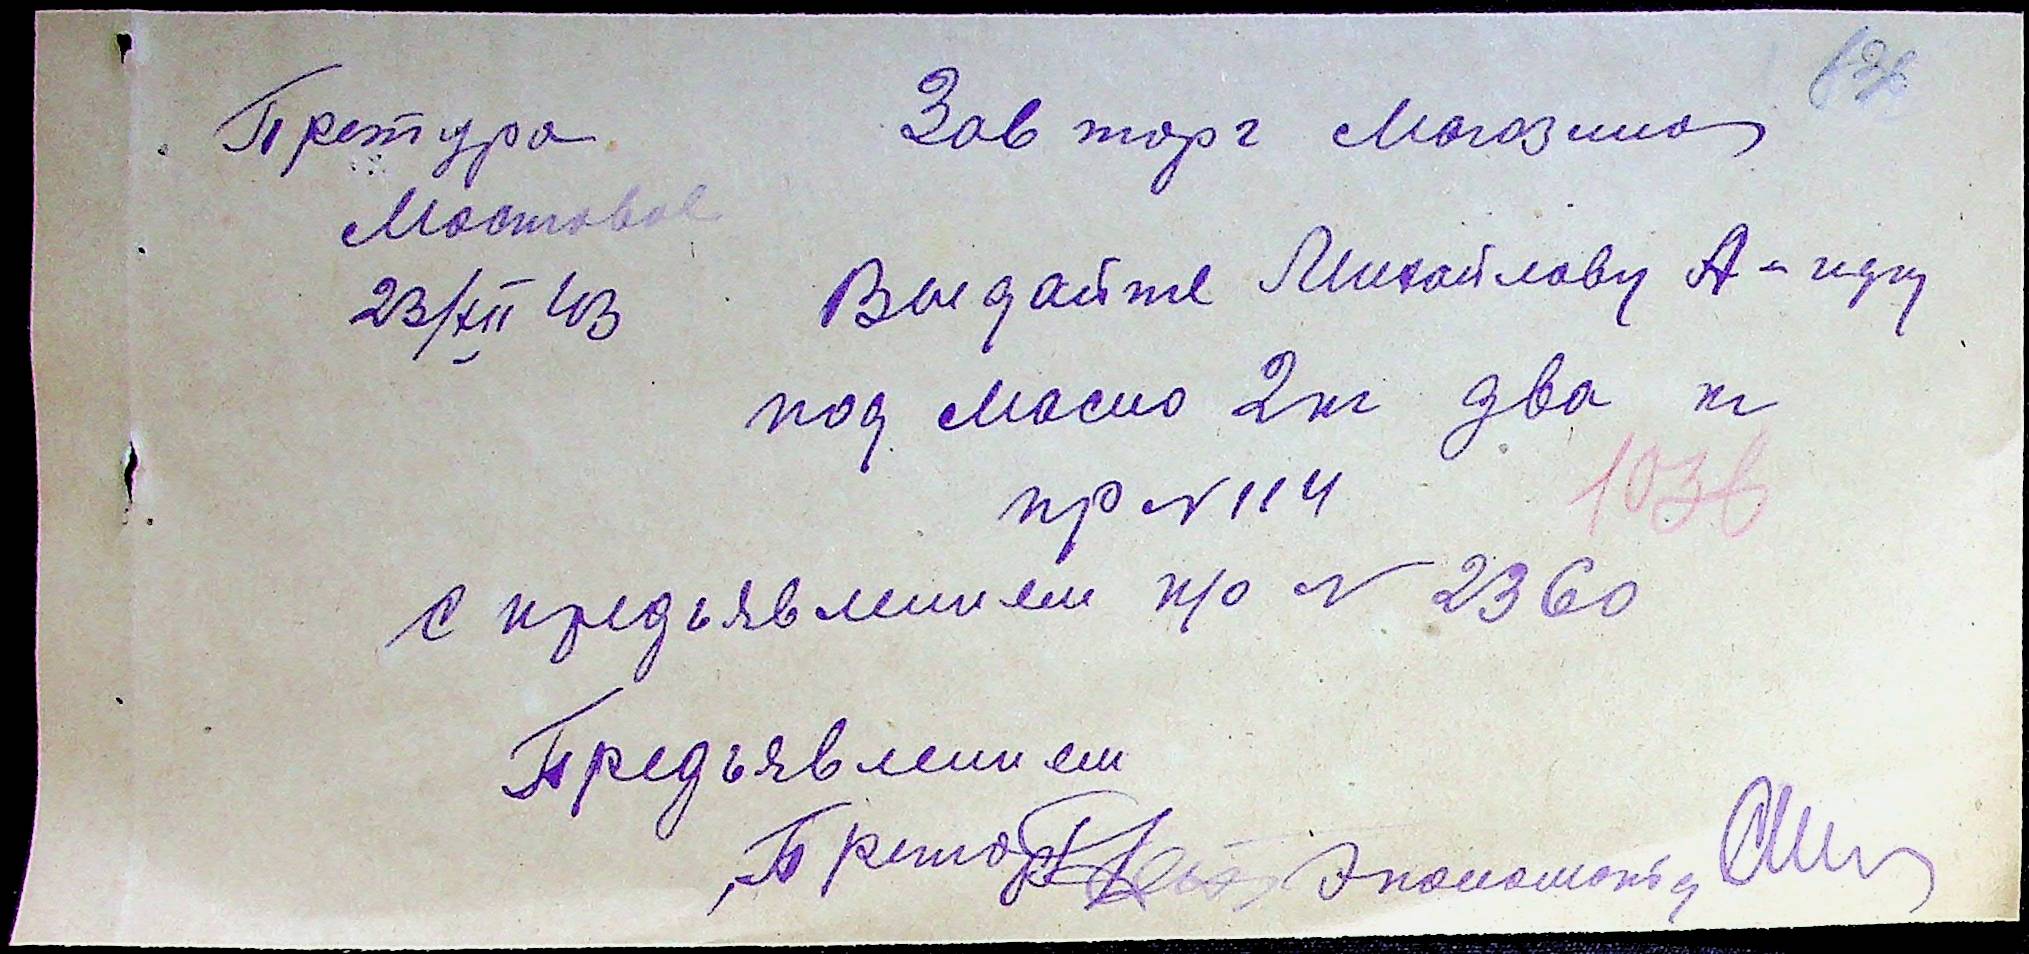 Претура
Мостовое
23/XII 43
Зав торг магазина
Выдайте Михайлову А-ндру
под масло 2 кг два кг
пр № 114
с предъявлением н/о № 2360
Предъявлением
Претор
Экономотд